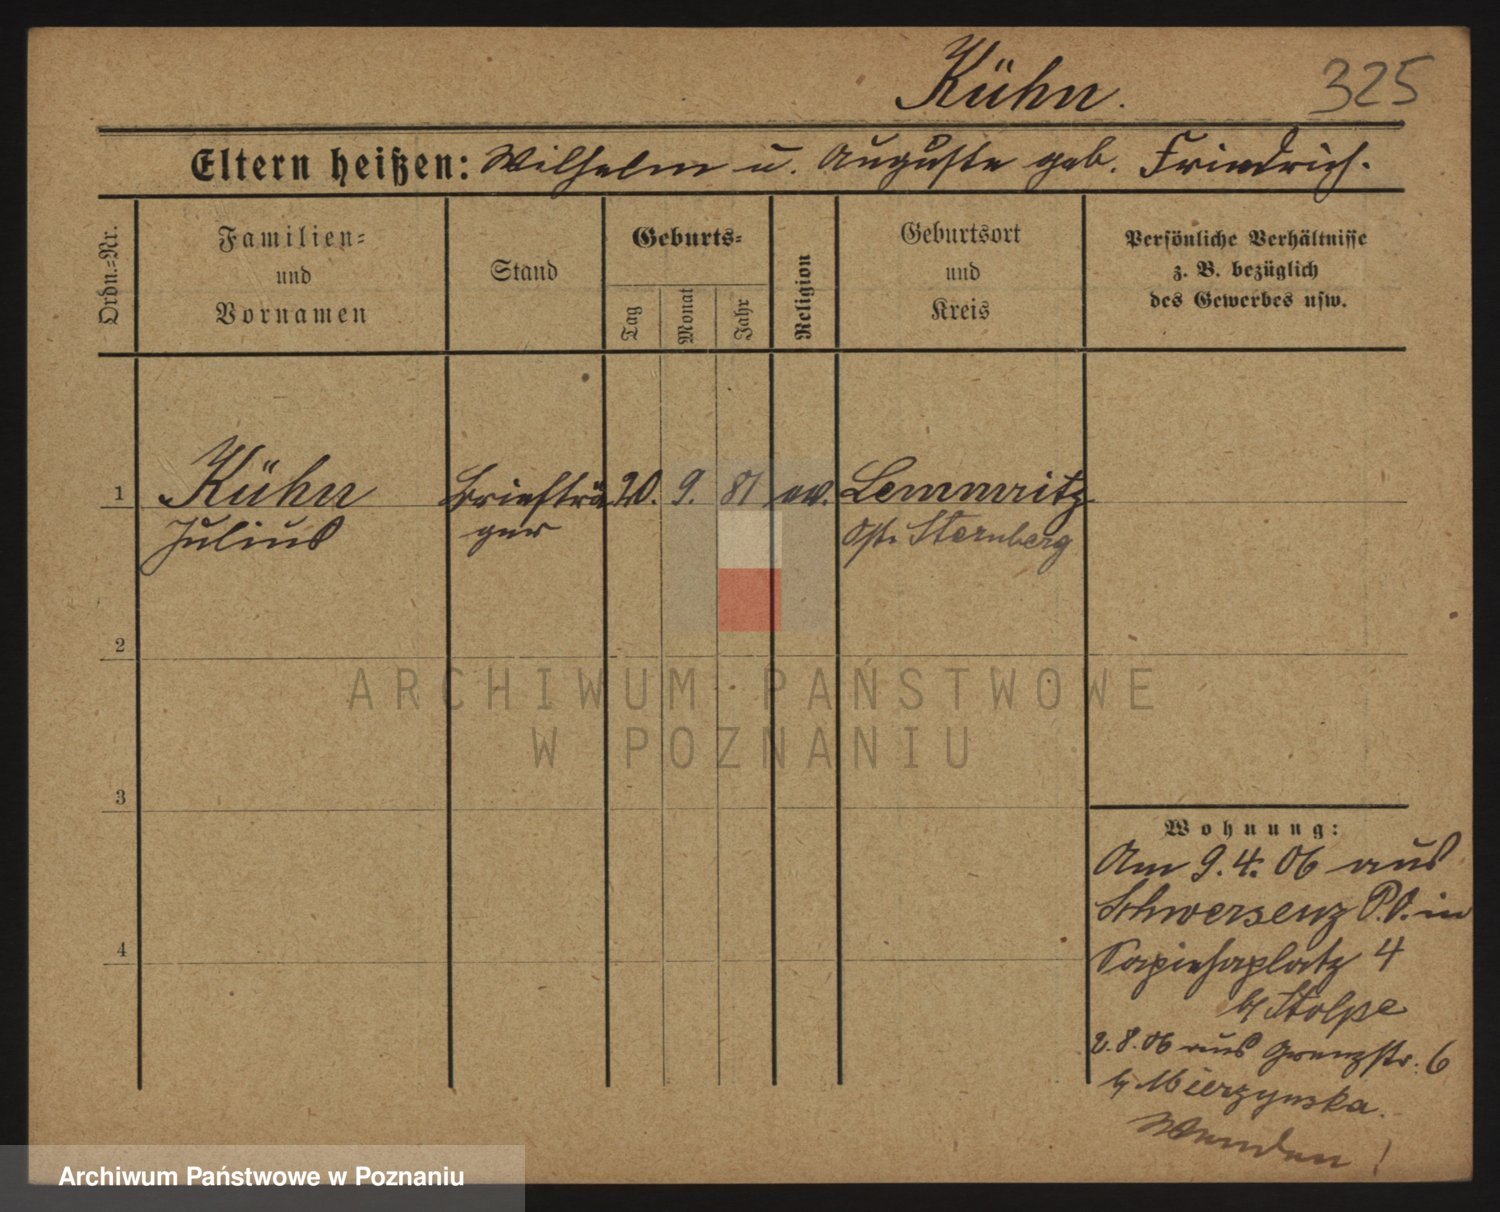 Kühn.
325
Eltern heißen: Wilhelm u. Auguste geb. Friedrich.
Ordn.=Nr.
Familien=
und
Vornamen
Stand
Geburts=
Tag
Monat
Jahr
Religion
Geburtsort
und
Kreis
Persönliche Verhältnisse
z. B. bezüglich
des Gewerbes usw.
1
Kühn
Julius
Briefträ
ger
20.
9.
81
ev.
Lemmritz
Ost Sternberg
2
3
4
Wohnung:
Am 9.4.06 aus
Schwersenz P.O. in
Sapiehaplatz 4
b/ Stolpe
2.8.06 aus Grenzstr. 6
b/ Mierzynska.
Wenden!
ARCHIWUM PAŃSTWOWE
W POZNANIU
Archiwum Państwowe w Poznaniu